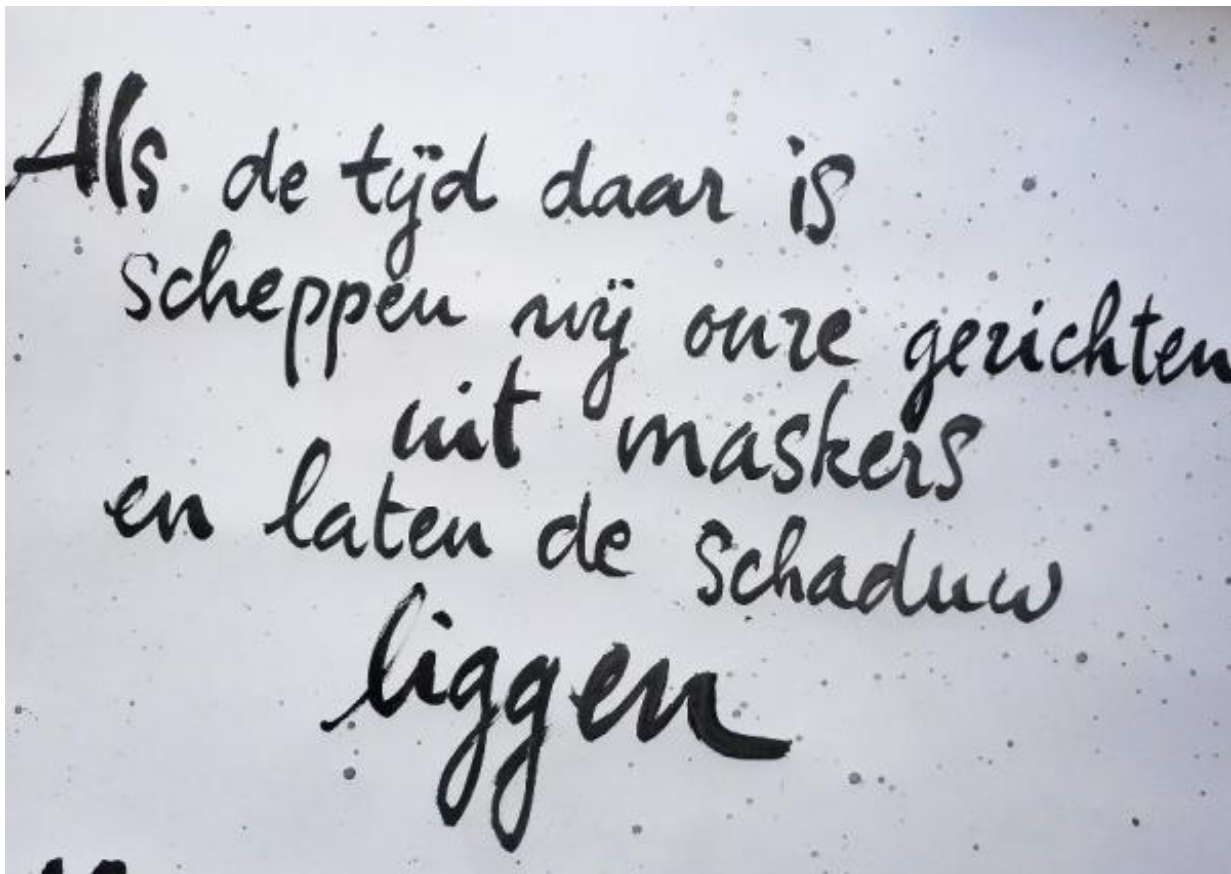 Als de tijd daar is
scheppen wij onze gezichten
uit maskers
en laten de schaduw
liggen